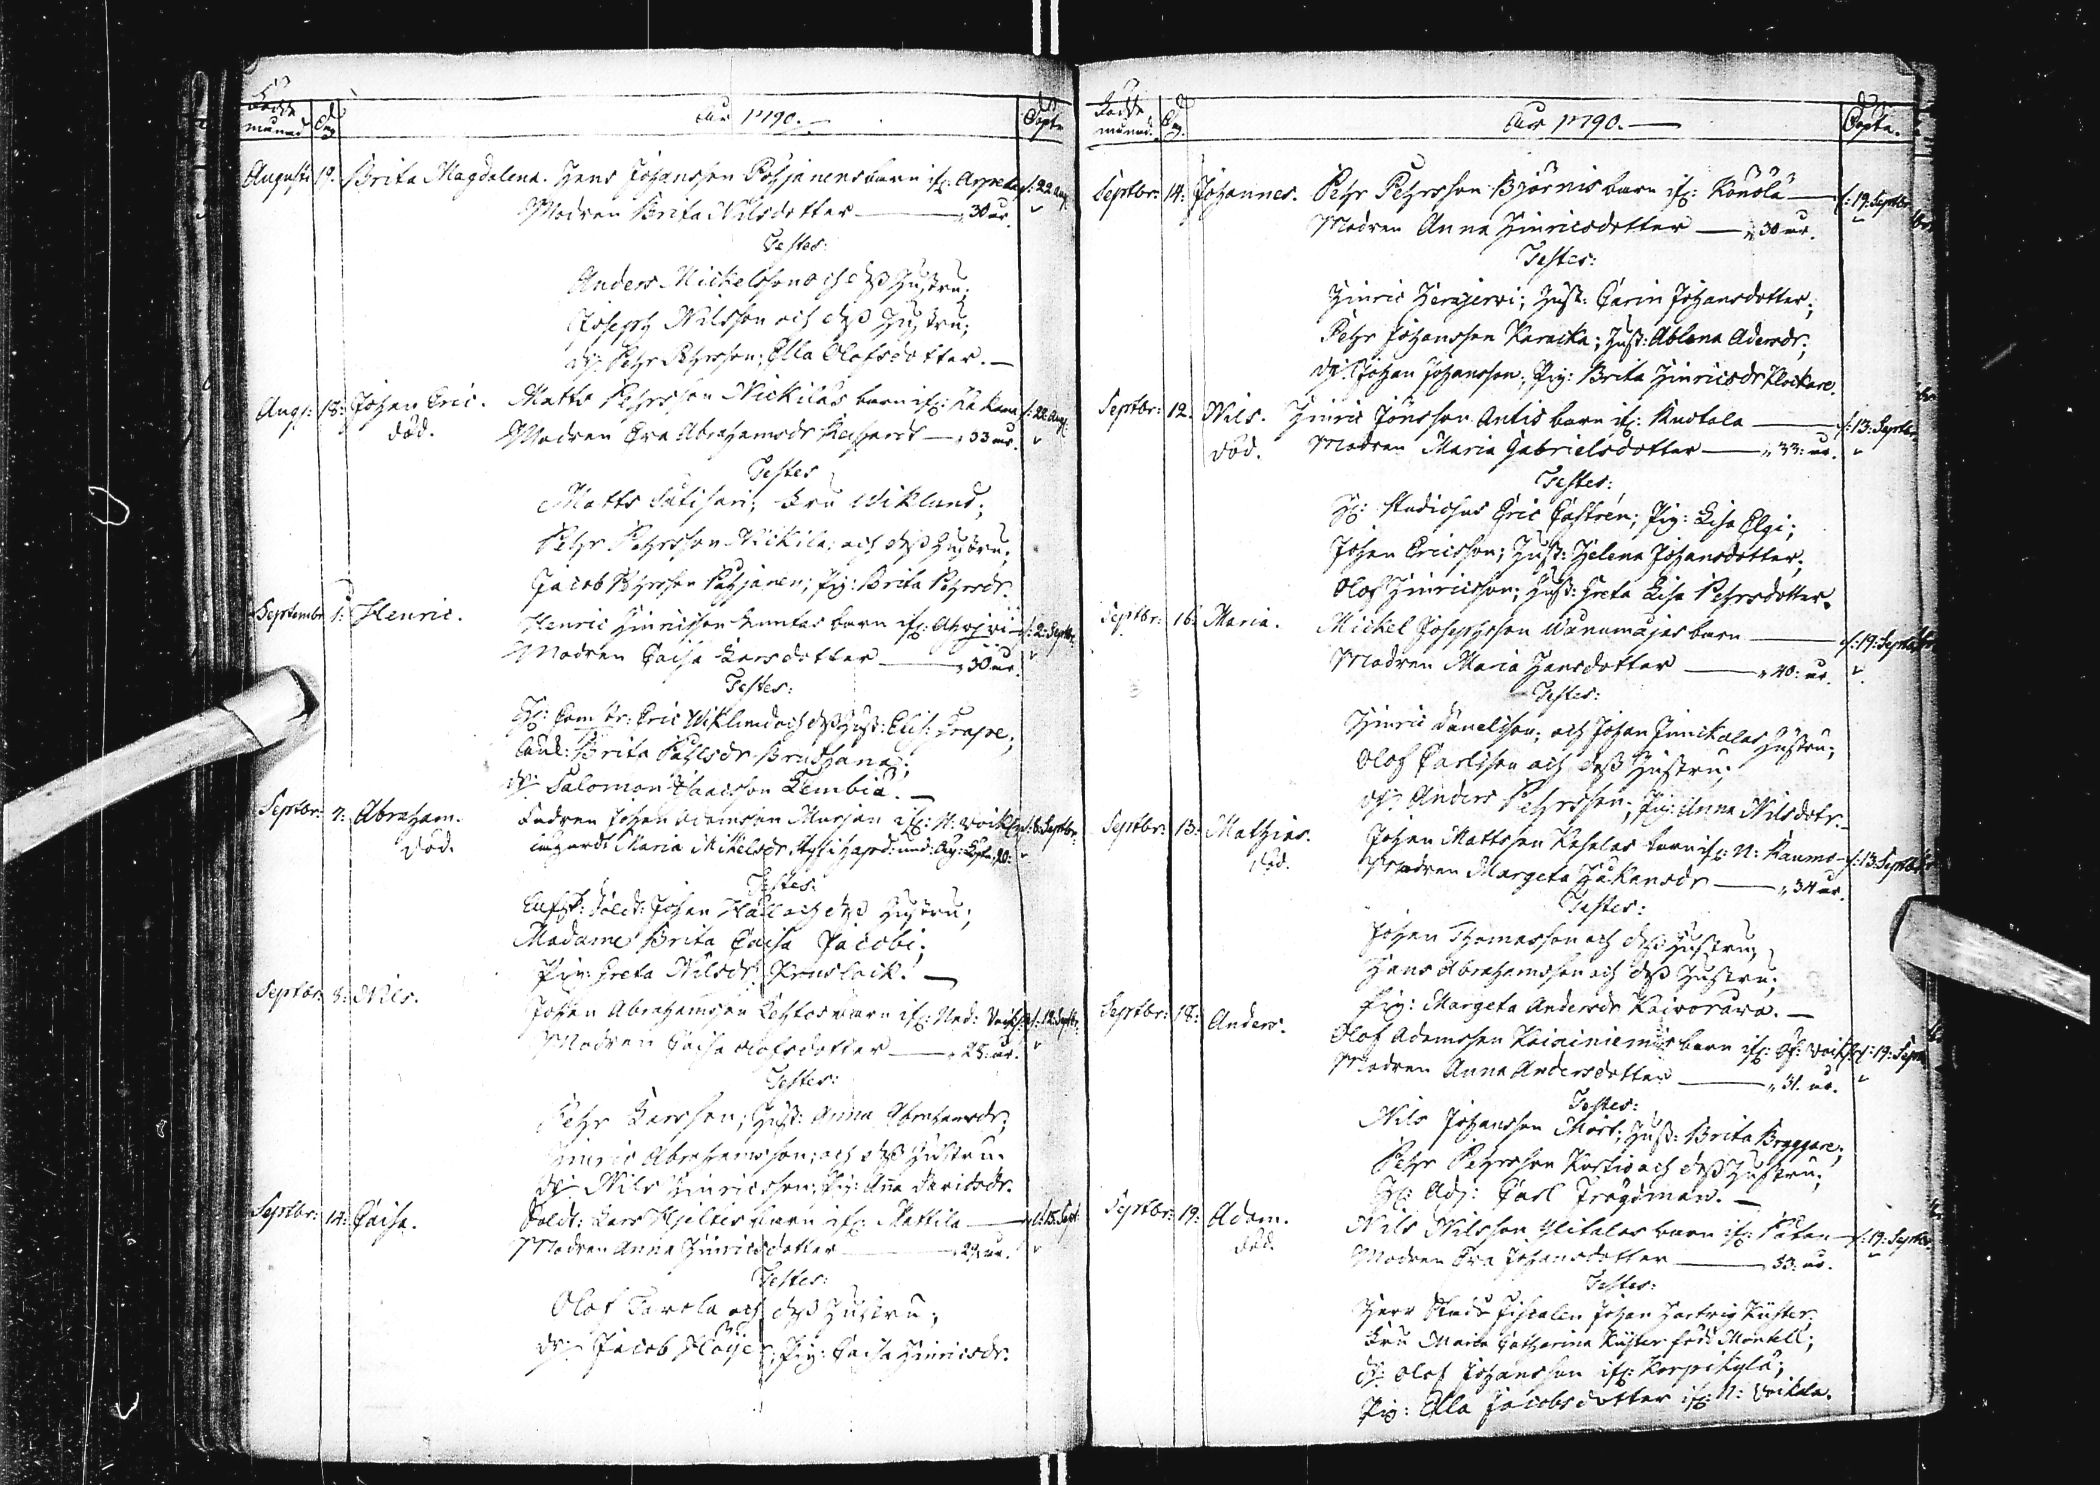 Födde månad Dag Åhr 1790. Döpte
Augusti 19. Brita Magdalena. Hans Johansson Pohjanens barn ifr: Arpela d: 22 Aug:
Modren Brita Nilsdotter — 30 år.
Testes:
Anders Mickelsson och dess Hustru;
Joseph Nilsson och dess Hustru;
dr: Pehr Pehrsson; Ella Olofsdotter. —
Aug: 18: Johan Eric. Matts Pehrsson Nickilas barn ifr: Kakama d: 22 Aug:
död. Modren Eva Abrahamsdr — 33 år.
Testes
Matts; Fru Wiklund;
Pehr Pehrsson Nickila; och dess Hustru;
Jacob Pehrsson Pohjanen; Pig: Brita Pehrsdr.
Septembr 1: Henric. Henric Hinricsson Runtas barn ifr: d: 2: Septbr:
Modren Caisa Larsdotter — 30 år.
Testes:
Hr: Eric Wiklund och dess Hust: Elis: Frape;
Brita Pålsdr;
dr: Salomon Isaacsson Kembiä. —
Septbr: 7: Abraham. Johan Adamsson ifr: N: Woikla d: 8: Septbr:
död. Maria Mickelsdr
Testes:
Johan Häll och dess Hustru;
Madame Brita Caisa Jacobi;
Pig: Greta Nilsdr. —
Septbr: 8: Nils. Johan Abrahamsson Lehtos barn ifr: Ned: d: 12: Septbr:
Modren Caisa Olofsdotter — 28: år.
Testes:
Pehr Larsson; Hust: Anna Abrahamsdr;
Hinric Abrahamsson; och dess Hustru.
dr: Nils Hinricsson; Pig: Anna Davidsdr.
Septbr: 14: Caisa. Soldt: Lars Hjeltes barn ifr: Mattila — d: 15: Sept:
Modren Anna Hinricsdotter — 29: år.
Testes:
Olof Tarola och dess Hustru;
dr: Jacob Höijer; Pig: Caisa Hinricsdr.
Födde månad. Dag. Åhr 1790. — Döpte.
Septbr: 14: Johannes. Pehr Pehrsson Björnis barn ifr: Könölä — d: 19: Septbr
Modren Anna Hinricsdotter — 30 år.
Testes:
Hinric Herajerwi; Hust: Carin Johansdotter;
Pehr Johansson Karacka; Hust: Ablona Adersdr;
dr: Johan Johansson; Pig: Brita Hinricsdr Klockare.
Septbr: 12. Nils. Hinric Jönsson Antis barn ifr: Kuotala — d: 13: Septbr
död. Modren Maria Gabrielsdotter — 33: år.
Testes:
Hr: Studiosus Eric Castrén; Pig: Lisa Elgi;
Johan Ericsson; Hust: Helena Johansdotter;
Olof Hinricsson; Hust: Greta Lisa Pehrsdotter.
Septbr: 16: Maria. Mickel Josephsson Wänmajas barn — d: 19: Septbr
Modren Maria Hansdotter — 40: år.
Testes:
Hinric Danelsson; och Johan Junickalas Hustru;
Olof Carlsson och dess Hustru;
dr: Anders Pehrsson; Pig: Anna Nilsdotr. —
Septbr: 13: Mathias. Johan Mattsson barn ifr: N: Raumo d: 13: Septbr
död. Modren Margeta Håkansdr — 34 år.
Testes:
Johan Thomasson och dess Hustru;
Hans Abrahamsson och dess Hustru;
Pig: Margeta Andersdr Kaivorara. —
Septbr: 18: Anders. Olof Adamsson Kainiemis barn ifr: d: 19: Sept
Modren Anna Andersdotter — 31. år.
Testes:
Nils Johansson Mört; Hust: Brita Bryggare;
Pehr Pehrsson och dess Hustru;
Hr: Adj: Carl Trogdman. —
Septbr: 19: Adam. Nils Nilsson Ylitalos barn ifr: d: 19: Septbr
död. Modren Eva Johansdotter — 33: år.
Testes:
Herr Stads fiscalen Johan Hartvig Küster;
Fru Maria Catharina Küster född Montell;
dr: Olof Johansson ifr: Korpikylä;
Pig: Ella Jacobsdotter ifr: N: Voikala.